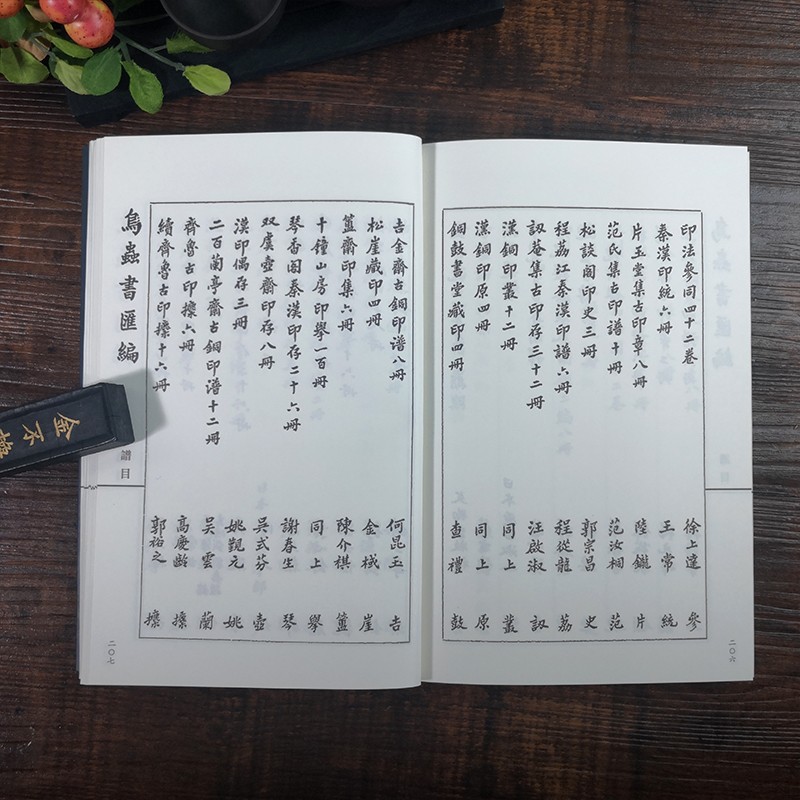 印法參同四十二卷 徐上達 參
秦漢印統六冊 王常 統
片玉堂集古印章八冊 陸鑨 片
范氏集古印譜十冊 范汝桐 范
松談閣印史三冊 郭宗昌 史
程荔江秦漢印譜六冊 程從龍 荔
訒菴集古印存三十二冊 汪啟淑 訒
漢銅印叢十二冊 同上 叢
漢銅印原四冊 同上 原
銅鼓書堂藏印四冊 查禮 鼓
譜目
二〇六
吉金齋古銅印譜八冊 何昆玉 吉
松崖藏印四冊 金棫 崖
簠齋印集六冊 陳介祺 簠
十鐘山房印舉一百冊 同上 舉
琴香閣秦漢印存二十六冊 謝春生 琴
双虞壺齋印存八冊 吳式芬 壺
漢印偶存三冊 姚觀元 姚
二百蘭亭齋古銅印譜十二冊 吳雲 蘭
齊魯古印攈六冊 高慶齡 攈
續齊魯古印攈十六冊 郭裕之 攈
鳥蟲書匯編
譜目
二〇七
金不換